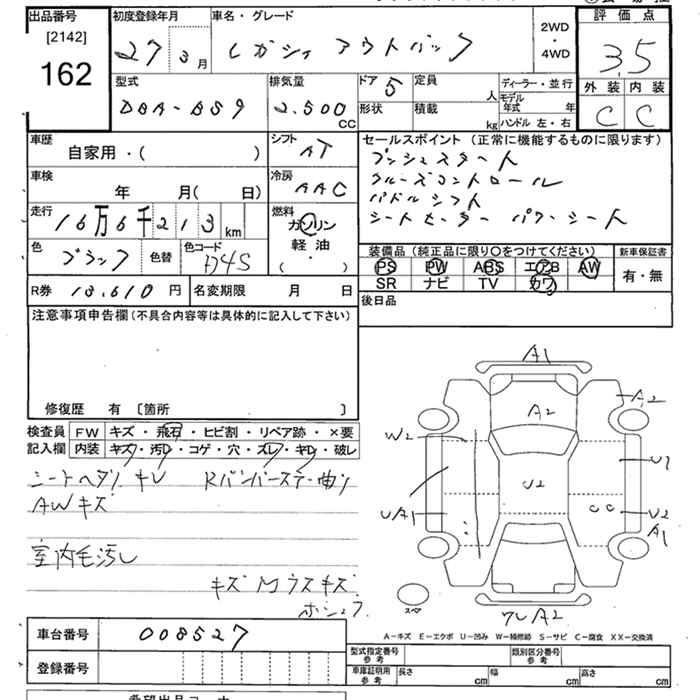 出品番号
[2142]
162
初度登録年月
27 3月
車名・グレード
レガシィ アウトバック
2WD
・
4WD
評価点
3.5
外装 内装
C C
型式
DBA-BS9
排気量
2.500 CC
ドア 5
定員 人
形状
積載 kg
ディーラー・並行
モデル年式 年
ハンドル 左・右
車歴
自家用・( )
シフト AT
車検
年 月( 日)
冷房 AAC
走行
16万6千213km
燃料
ガソリン
軽油
( ・ )
色 ブラック
色替
色コード D4S
R券 13.610 円
名変期限 月 日
セールスポイント (正常に機能するものに限ります)
プッシュスタート
クルーズコントロール
パドルシフト
シートヒーター パワーシート
装備品 (純正品に限り○をつけてください)
新車保証書
PS PW ABS エアB AW
SR ナビ TV カワ
有・無
後日品
注意事項申告欄 (不具合内容等は具体的に記入して下さい)
修復歴 有 〔箇所 〕
検査員記入欄
FW キズ・飛石・ヒビ割・リペア跡・×要
内装 キズ・汚レ・コゲ・穴・スレ・キレ・破レ
シートヘタリ キレ Rバンパーステー曲り
AWキズ
室内毛汚し
キズ Mラスキズ
A1
A2
A2
W2
U1
U2
UA1
CC
U2
A1
A2
スペア
A-キズ E-エクボ U-凹み W-補修跡 S-サビ C-腐食 XX-交換済
車台番号 008527
登録番号
型式指定番号 参考
類別区分番号 参考
車庫証明用 参考
長さ cm
幅 cm
高さ cm